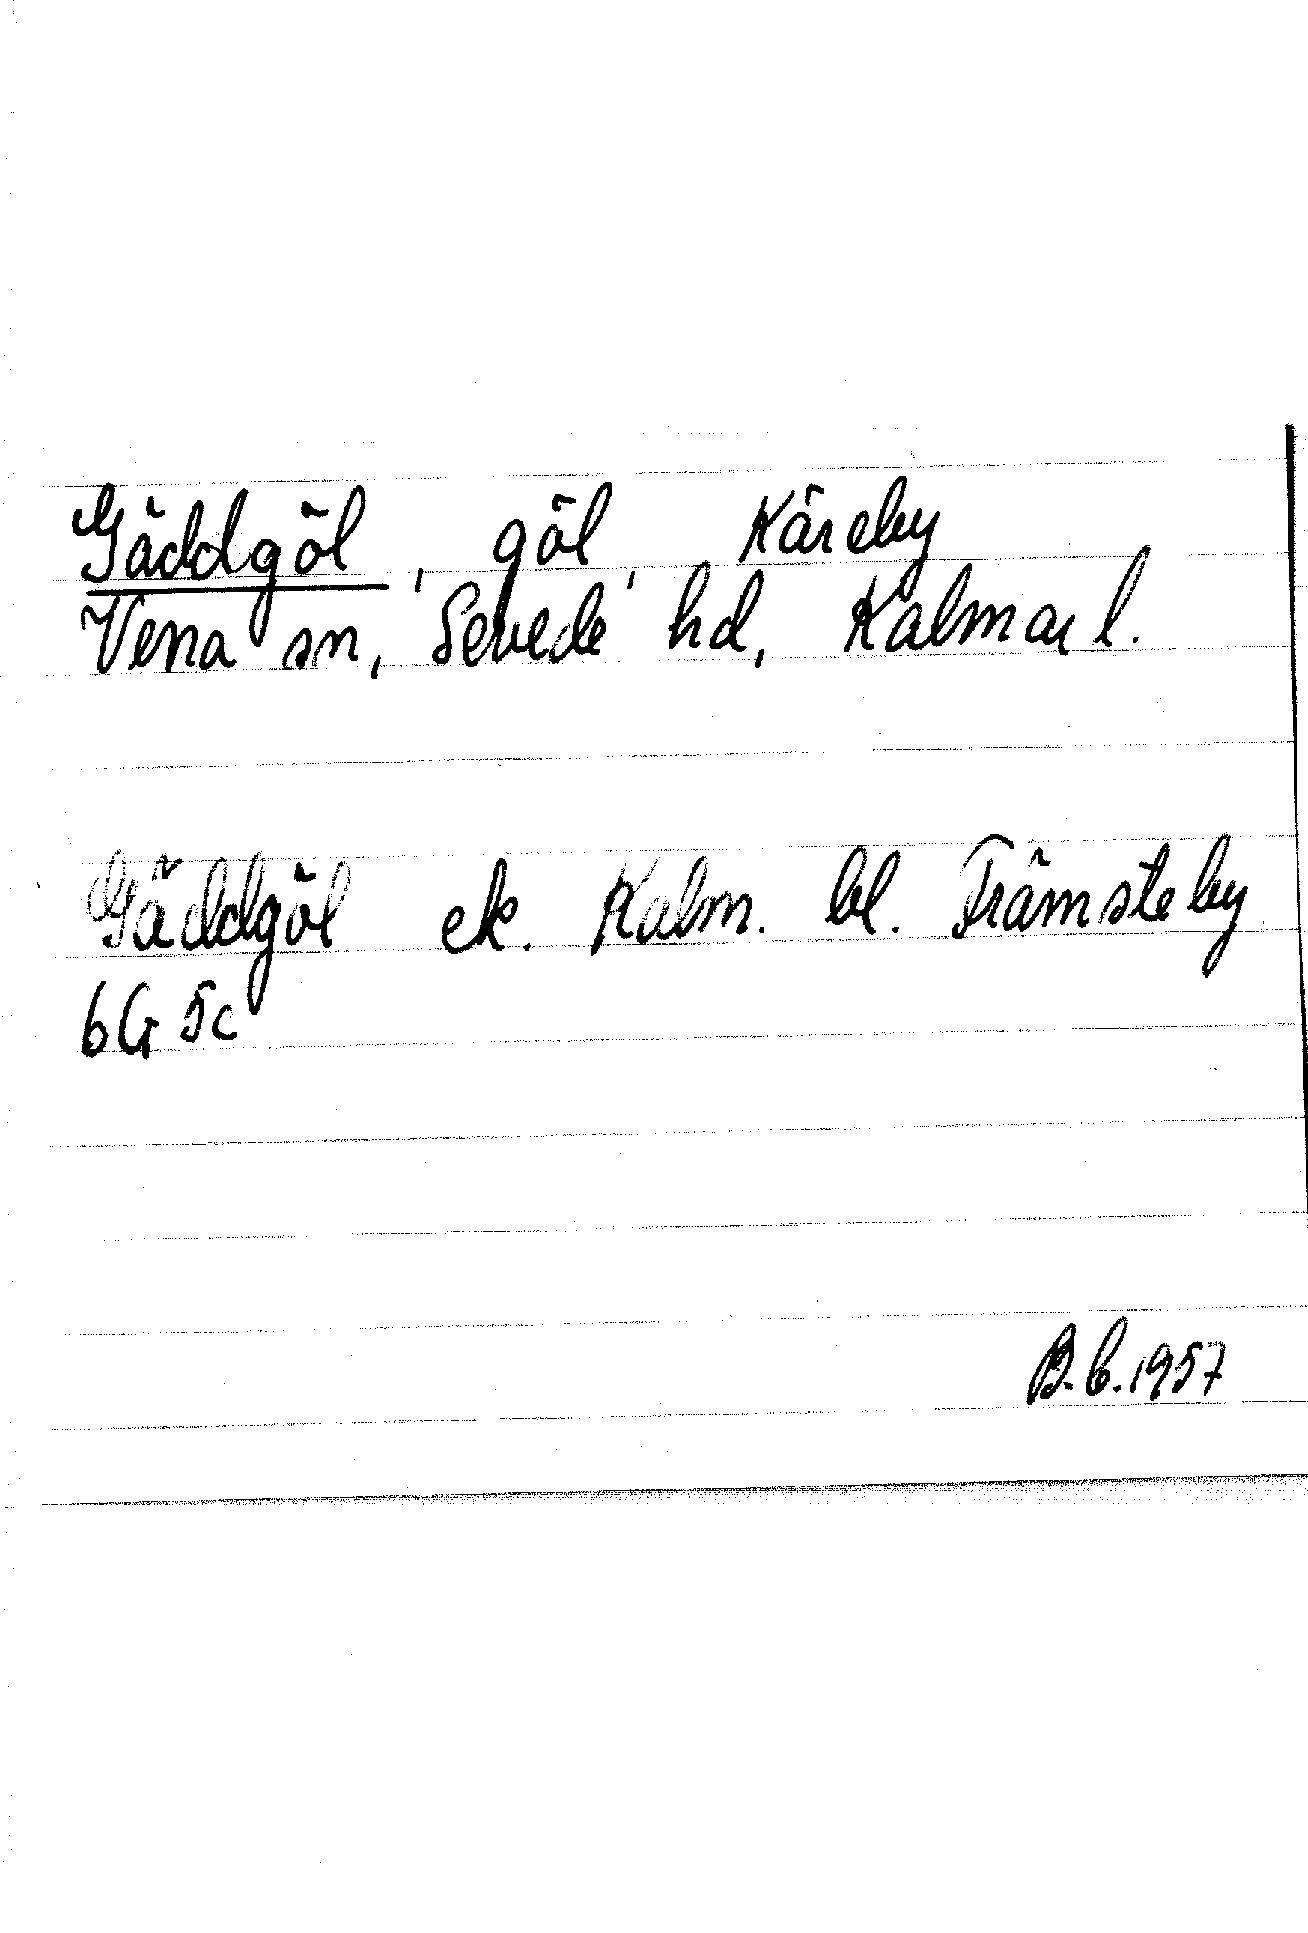 Gäddgöl, göl, Käreby
Vena sn, Sevede hd, Kalmar l.
Gäddgöl ek. Kalm. bl. Främsteby
6G 5c
B.C. 1957